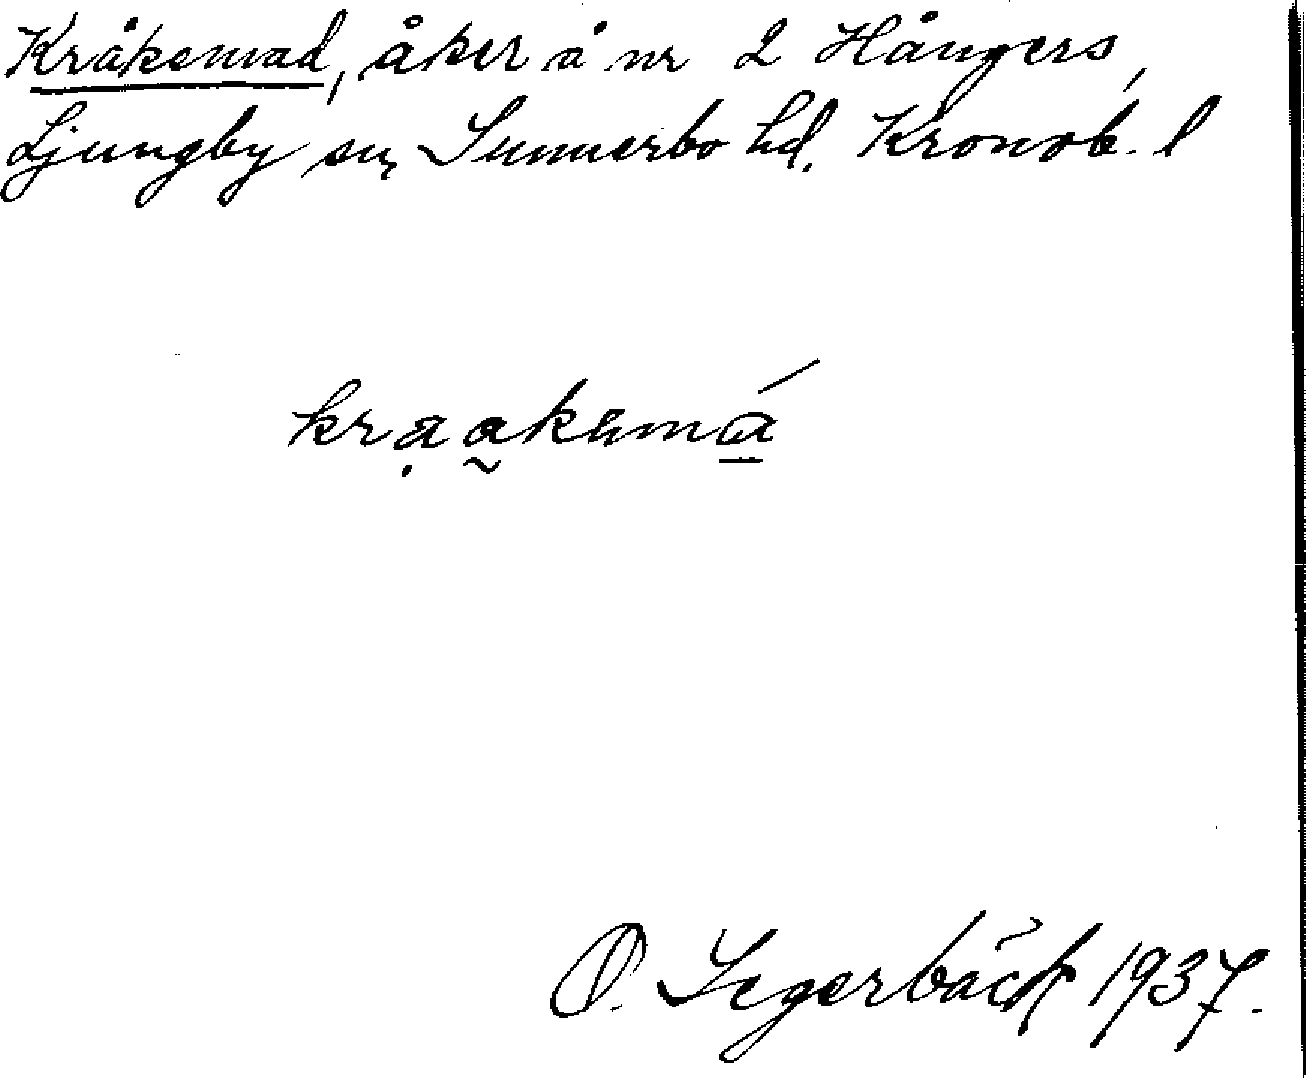 Kråkemad, åker å nr 2 Hångers,
Ljungby sn, Sunnerbo hd. Kronob. l
O. Segerbäck 1937.